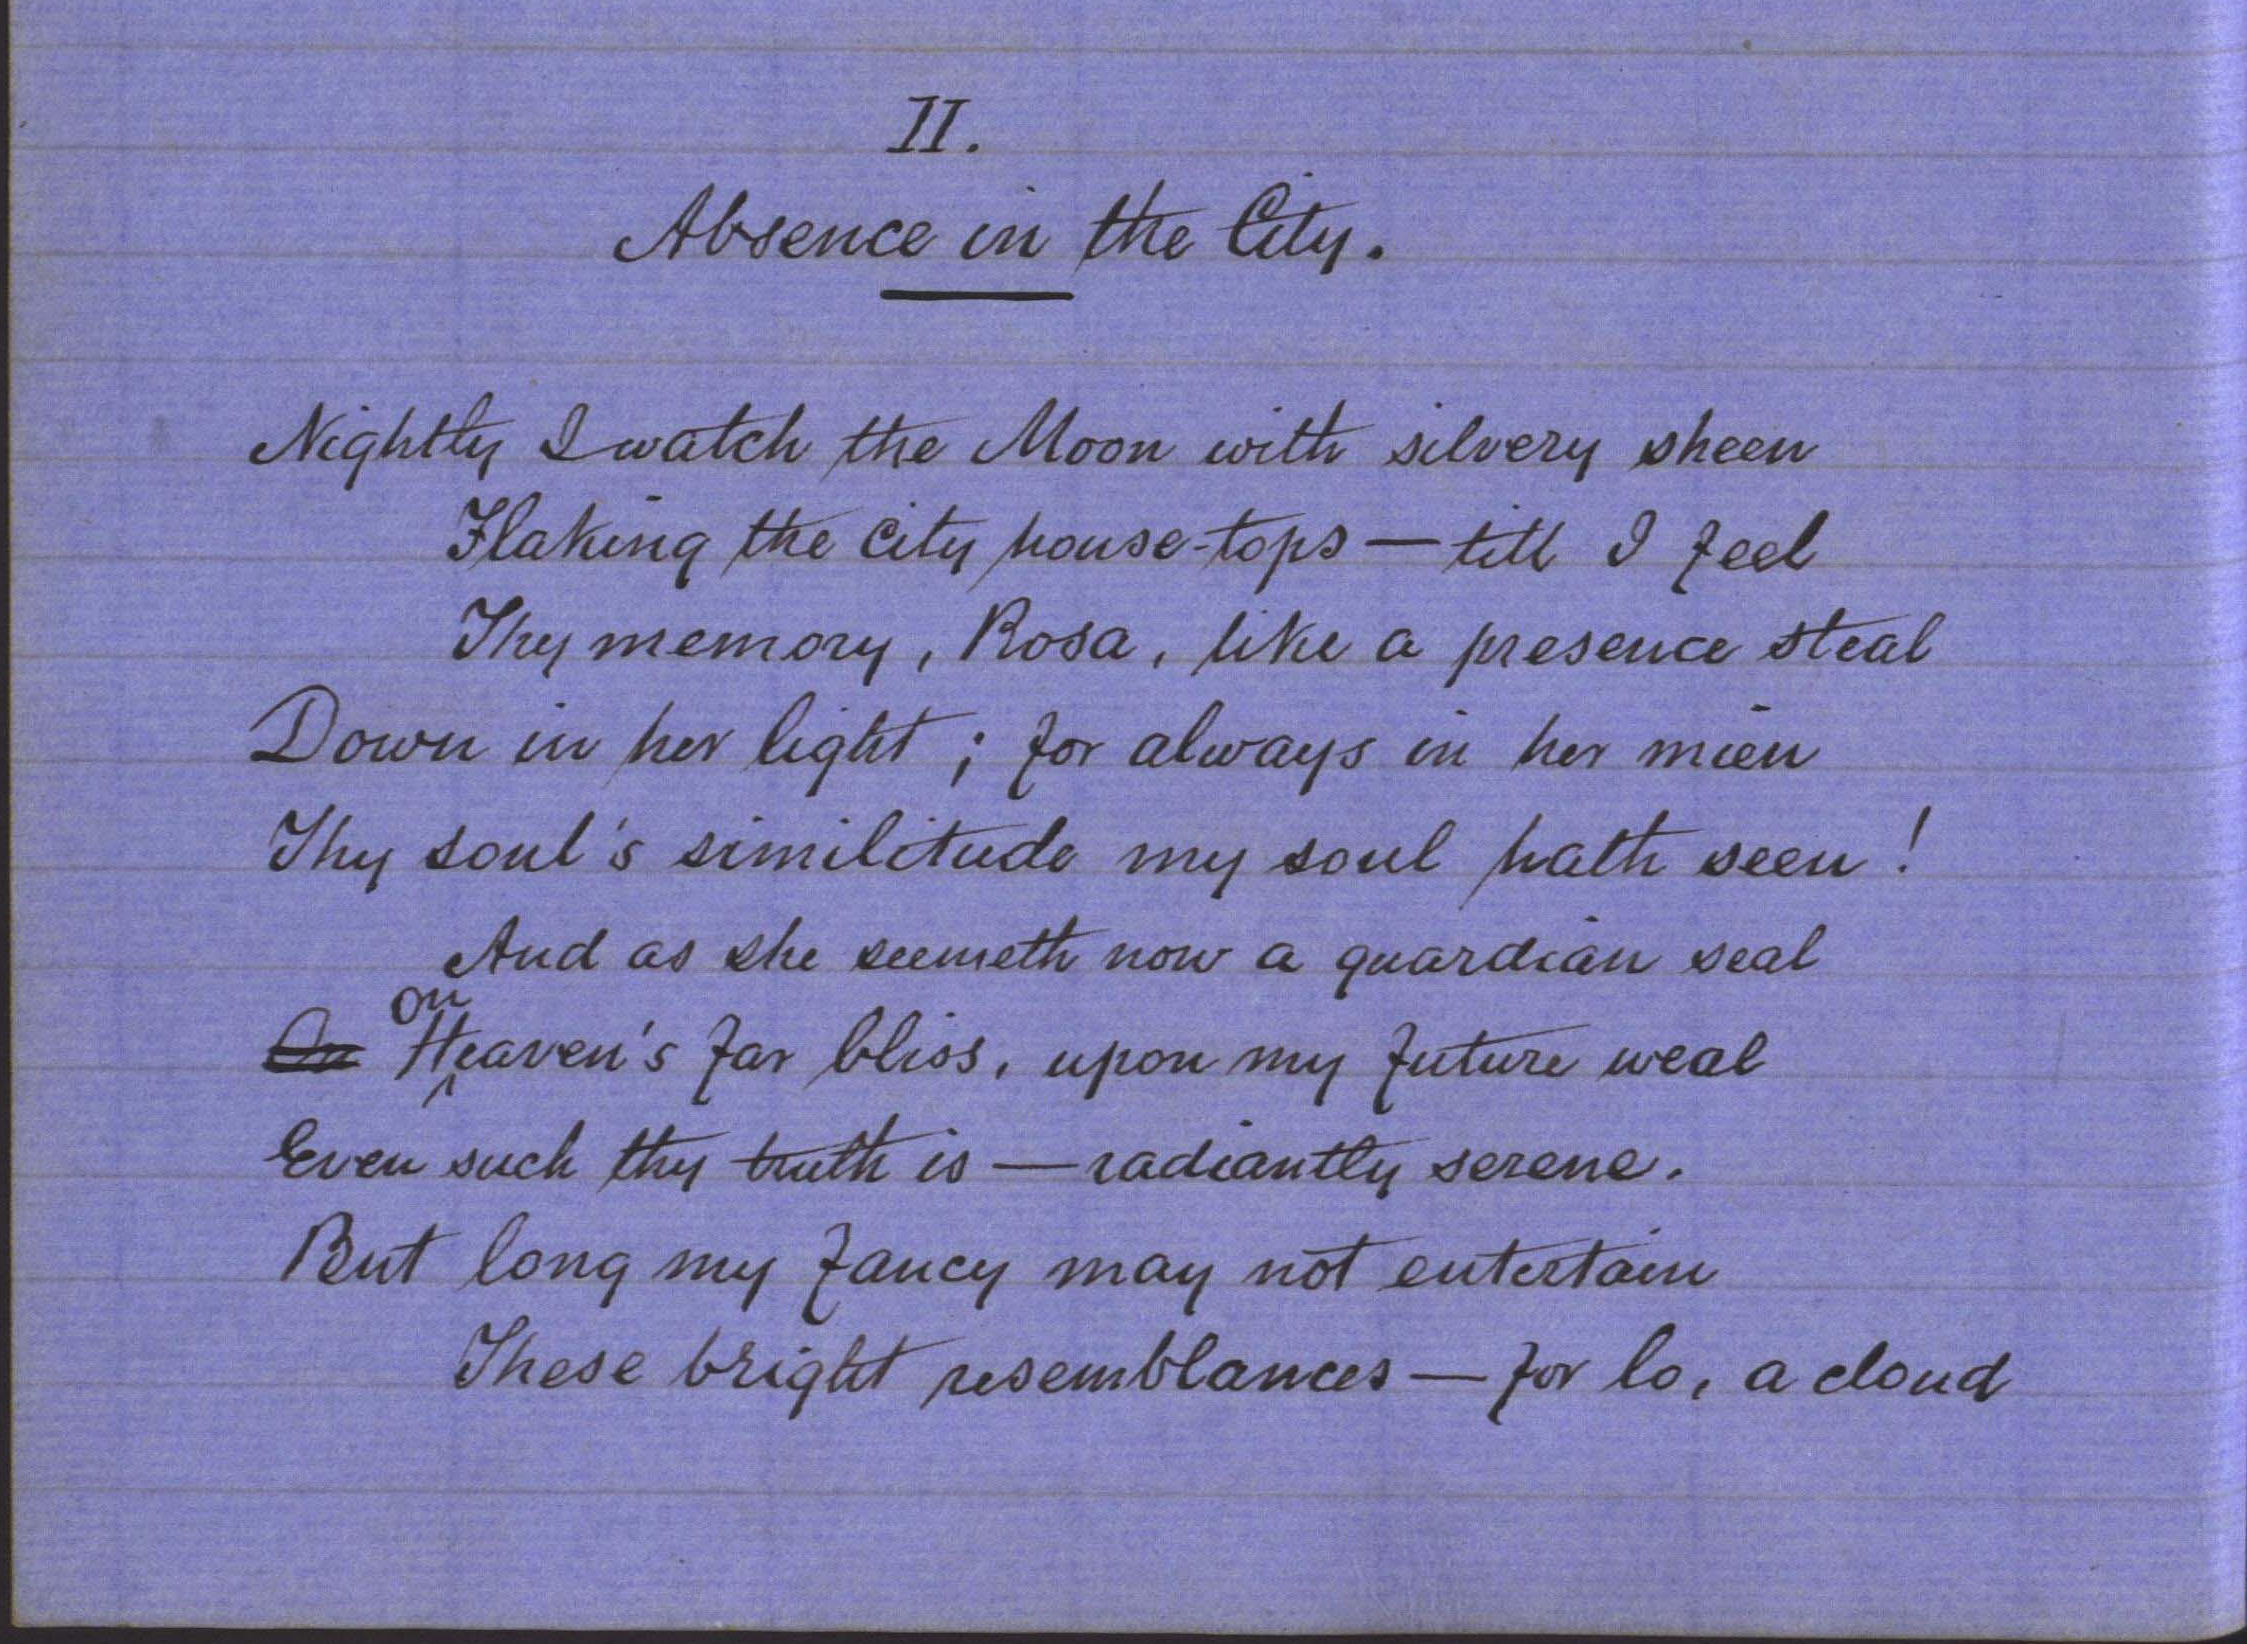 II.
Absence in the City.
Nightly I watch the Moon with silvery sheen
Flaking the city house-tops — till I feel
Thy memory, Rosa, like a presence steal
Down in her light ; for always in her mien
Thy soul's similitude my soul hath seen !
And as she seemeth now a guardian seal
on
On Heaven's far bliss, upon my future weal
Even such thy truth is — radiantly serene.
But long my fancy may not entertain
These bright resemblances — for lo, a cloud